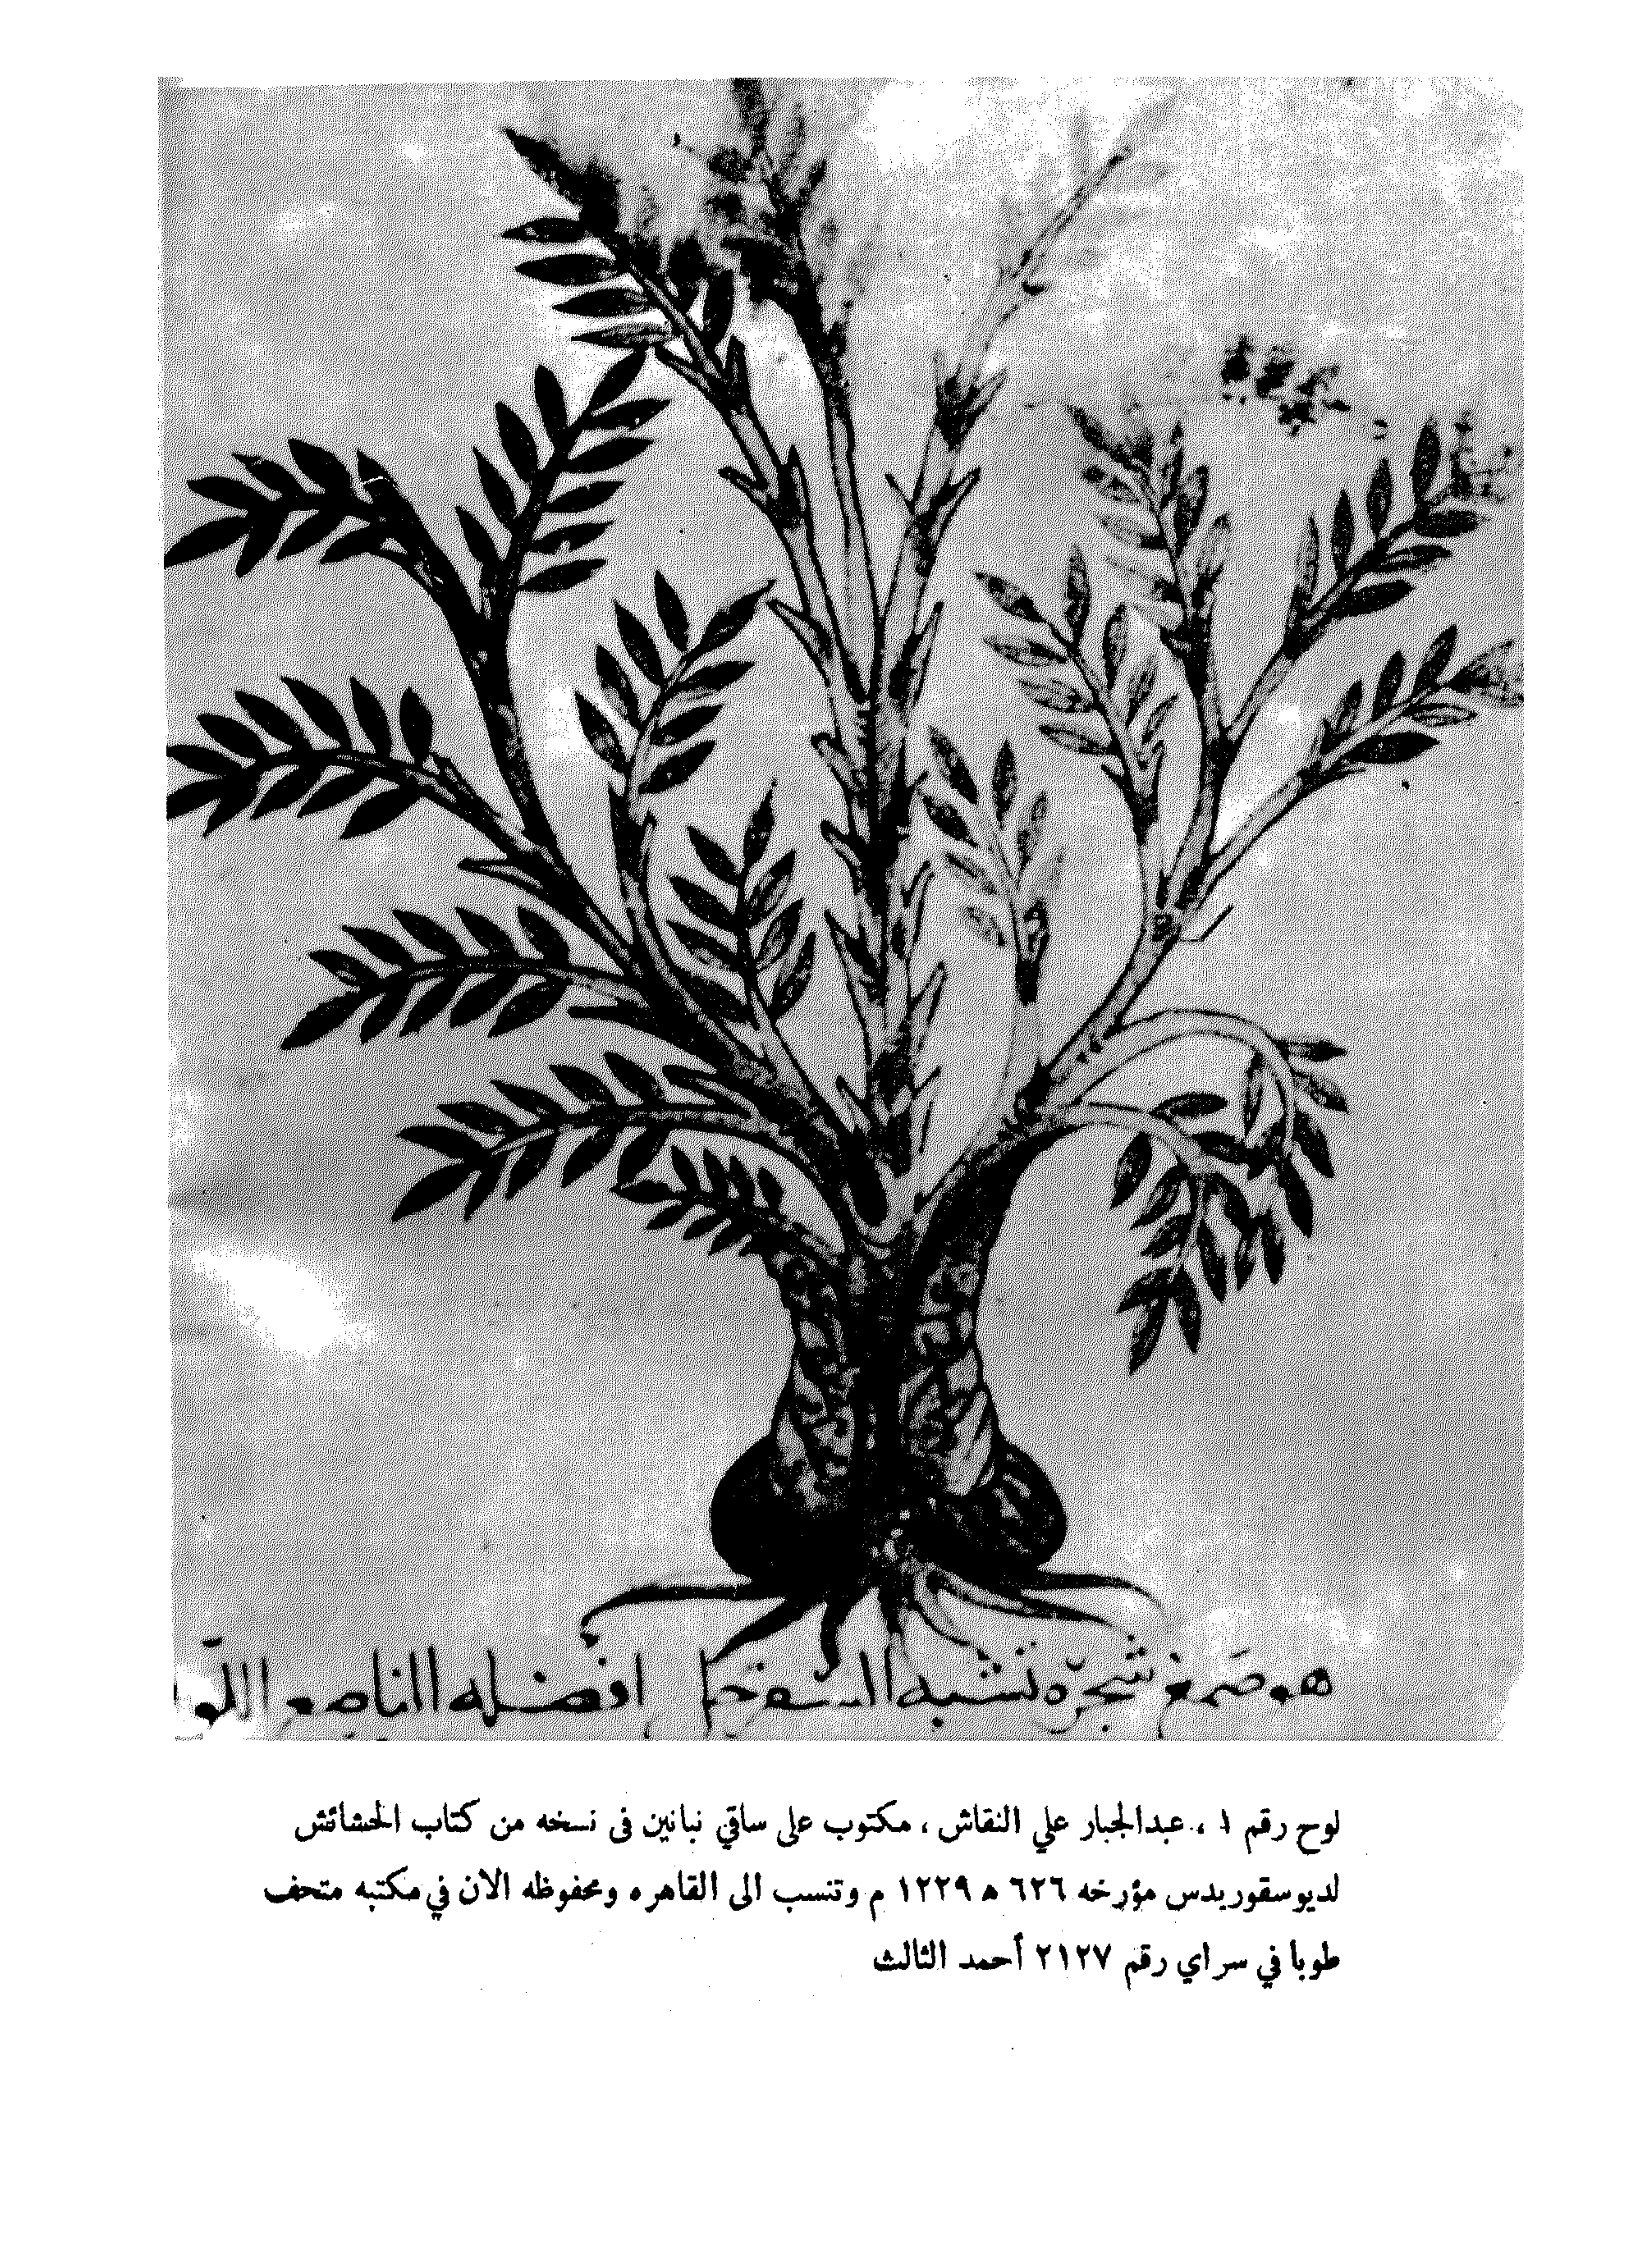 هو صمغ شجره تشبه السفرجل افضله الناصع اللون
لوح رقم ١ ، عبدالجبار علي النقاش ، مكتوب على ساقي نباتين فى نسخه من كتاب الحشائش
لديوسقوريدس مؤرخه ٦٢٦ ه ١٢٢٩ م وتنسب الى القاهره ومحفوظه الان في مكتبه متحف
طوبا في سراي رقم ٢١٢٧ أحمد الثالث